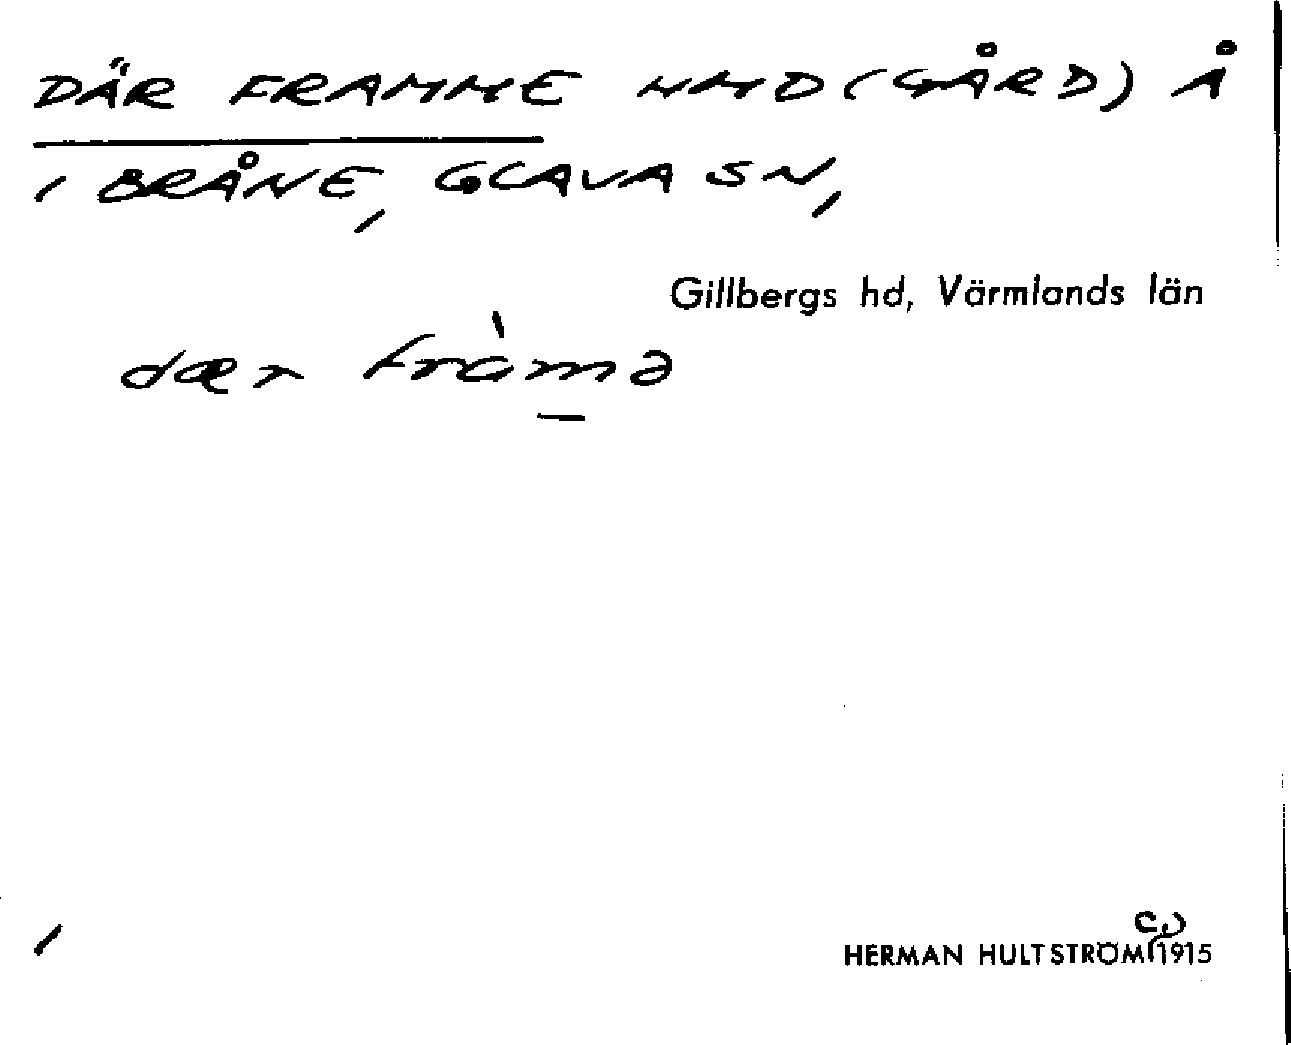 DÄR FRAMME HMD (GÅRD) Å
I BRÅNE, GLAVA SN,
Gillbergs hd, Värmlands län
dær fràmə
HERMAN HULTSTRÖM 1915